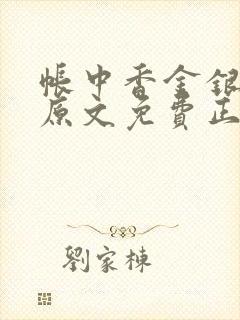 帳中香金銀
原文免費正
劉家棟